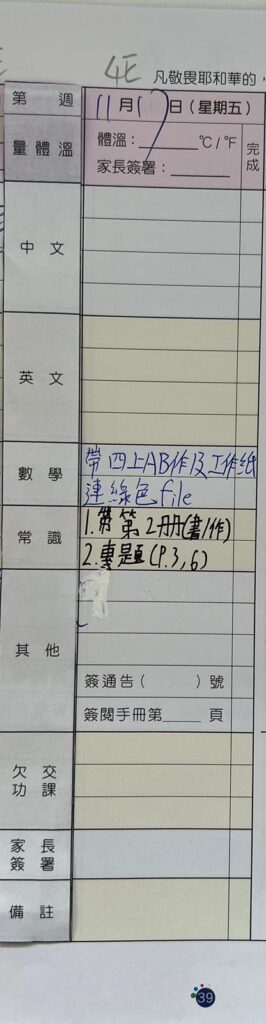 4E 凡敬畏耶和華的，
第 週 11月17日(星期五)
量體溫 體溫：______°C/°F 完成
家長簽署：______
中文
英文
數學 帶四上AB作及工作紙
連綠色file
常識 1.帶第2冊(書/作)
2.專題(P.3,6)
其他
簽通告( )號
簽閱手冊第____頁
欠交功課
家長簽署
備註
39